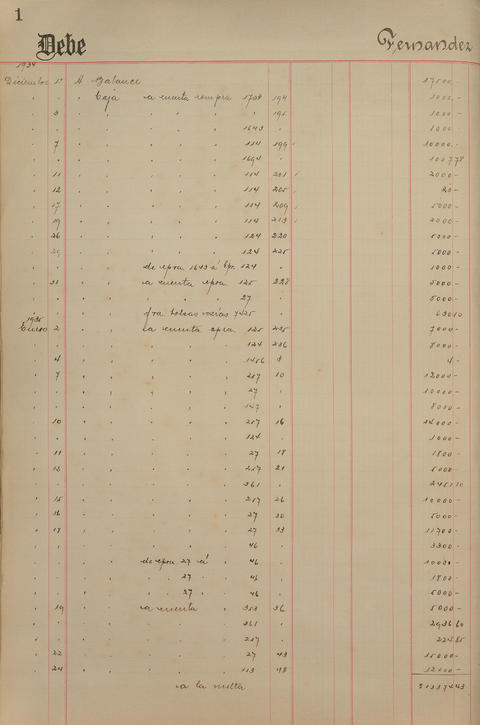 1
Debe Fernandez
1934
Diciembre 1º A Balance 17500.-
" " " Caja a cuenta compra 1708 194 1000.-
" 3 " " " " " " " 195 1000.-
" " " " " " " " 1643 " 1000
" 7 " " " " " " 114 199 10000.-
" " " " " " " " 1694 " 100778
" 11 " " " " " " 114 201 2000.-
" 12 " " " " " " 114 205 20.-
" 17 " " " " " " 114 209 5000.-
" 19 " " " " " " 114 213 2000.-
" 26 " " " " " " 124 220 5000.-
" 29 " " " " " " 124 225 5000.-
" " " " de cpra 1643 á cpr. 124 " 1000.-
" 31 " " a cuenta cpra 125 228 5000.-
" " " " " " " 27 " 5000.-
" " " " fra bolsas vacias 7425 63010
1935
Enero 2 " " a cuenta cpra 125 235 7000.-
" " " " " " " 124 236 8000.-
" 4 " " " " " " 1456 8 4.-
" 7 " " " " " " 217 10 12000.-
" " " " " " " " 27 " 10000.-
" " " " " " " " 147 " 8000.-
" 10 " " " " " " 217 16 14000.-
" " " " " " " " 124 " 1000.-
" 11 " " " " " " 27 18 1800.-
" 12 " " " " " " 217 21 5000.-
" " " " " " " " 361 " 245110
" 15 " " " " " " 217 26 10000.-
" 16 " " " " " " 27 30 5000.-
" 17 " " " " " " 27 33 11700.-
" " " " " " " " 46 " 3300.-
" " " " de cpra 27 á 46 " 10000.-
" " " " " 27 " 46 " 1800.-
" " " " " 27 " 46 " 5000.-
" 19 " " a cuenta " 353 36 5000.-
" " " " " " " " 361 " 293660
" " " " " " " " 217 " 22485
" 22 " " " " " " 27 43 15000.-
" 24 " " " " " " 113 48 12000.-
a la vuelta 21337443